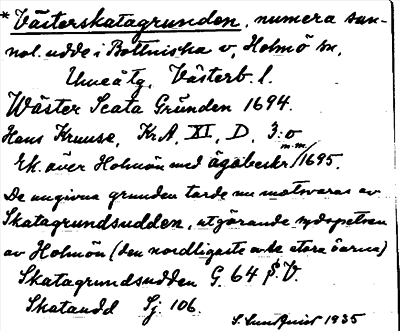 * Västerskatagrunden, numera san-
nol. udde i Bottniska v, Holmö sn,
Umeå tg, Västerb. l.
Wäster Scata Grũnden 1694.
Hans Kruuse, Kr.A, XI, D, 3:o
Ek. över Holmön med ägobeskr m.m./1695.
De angivna grunden torde nu motsvaras av
Skatagrundsudden, utgörande sydspetsen
av Holmön (den nordligaste av de stora öarna)
Skatagrundsudden G. 64 S.V.
Skataudd Sj. 106.
S. Lundquist 1935